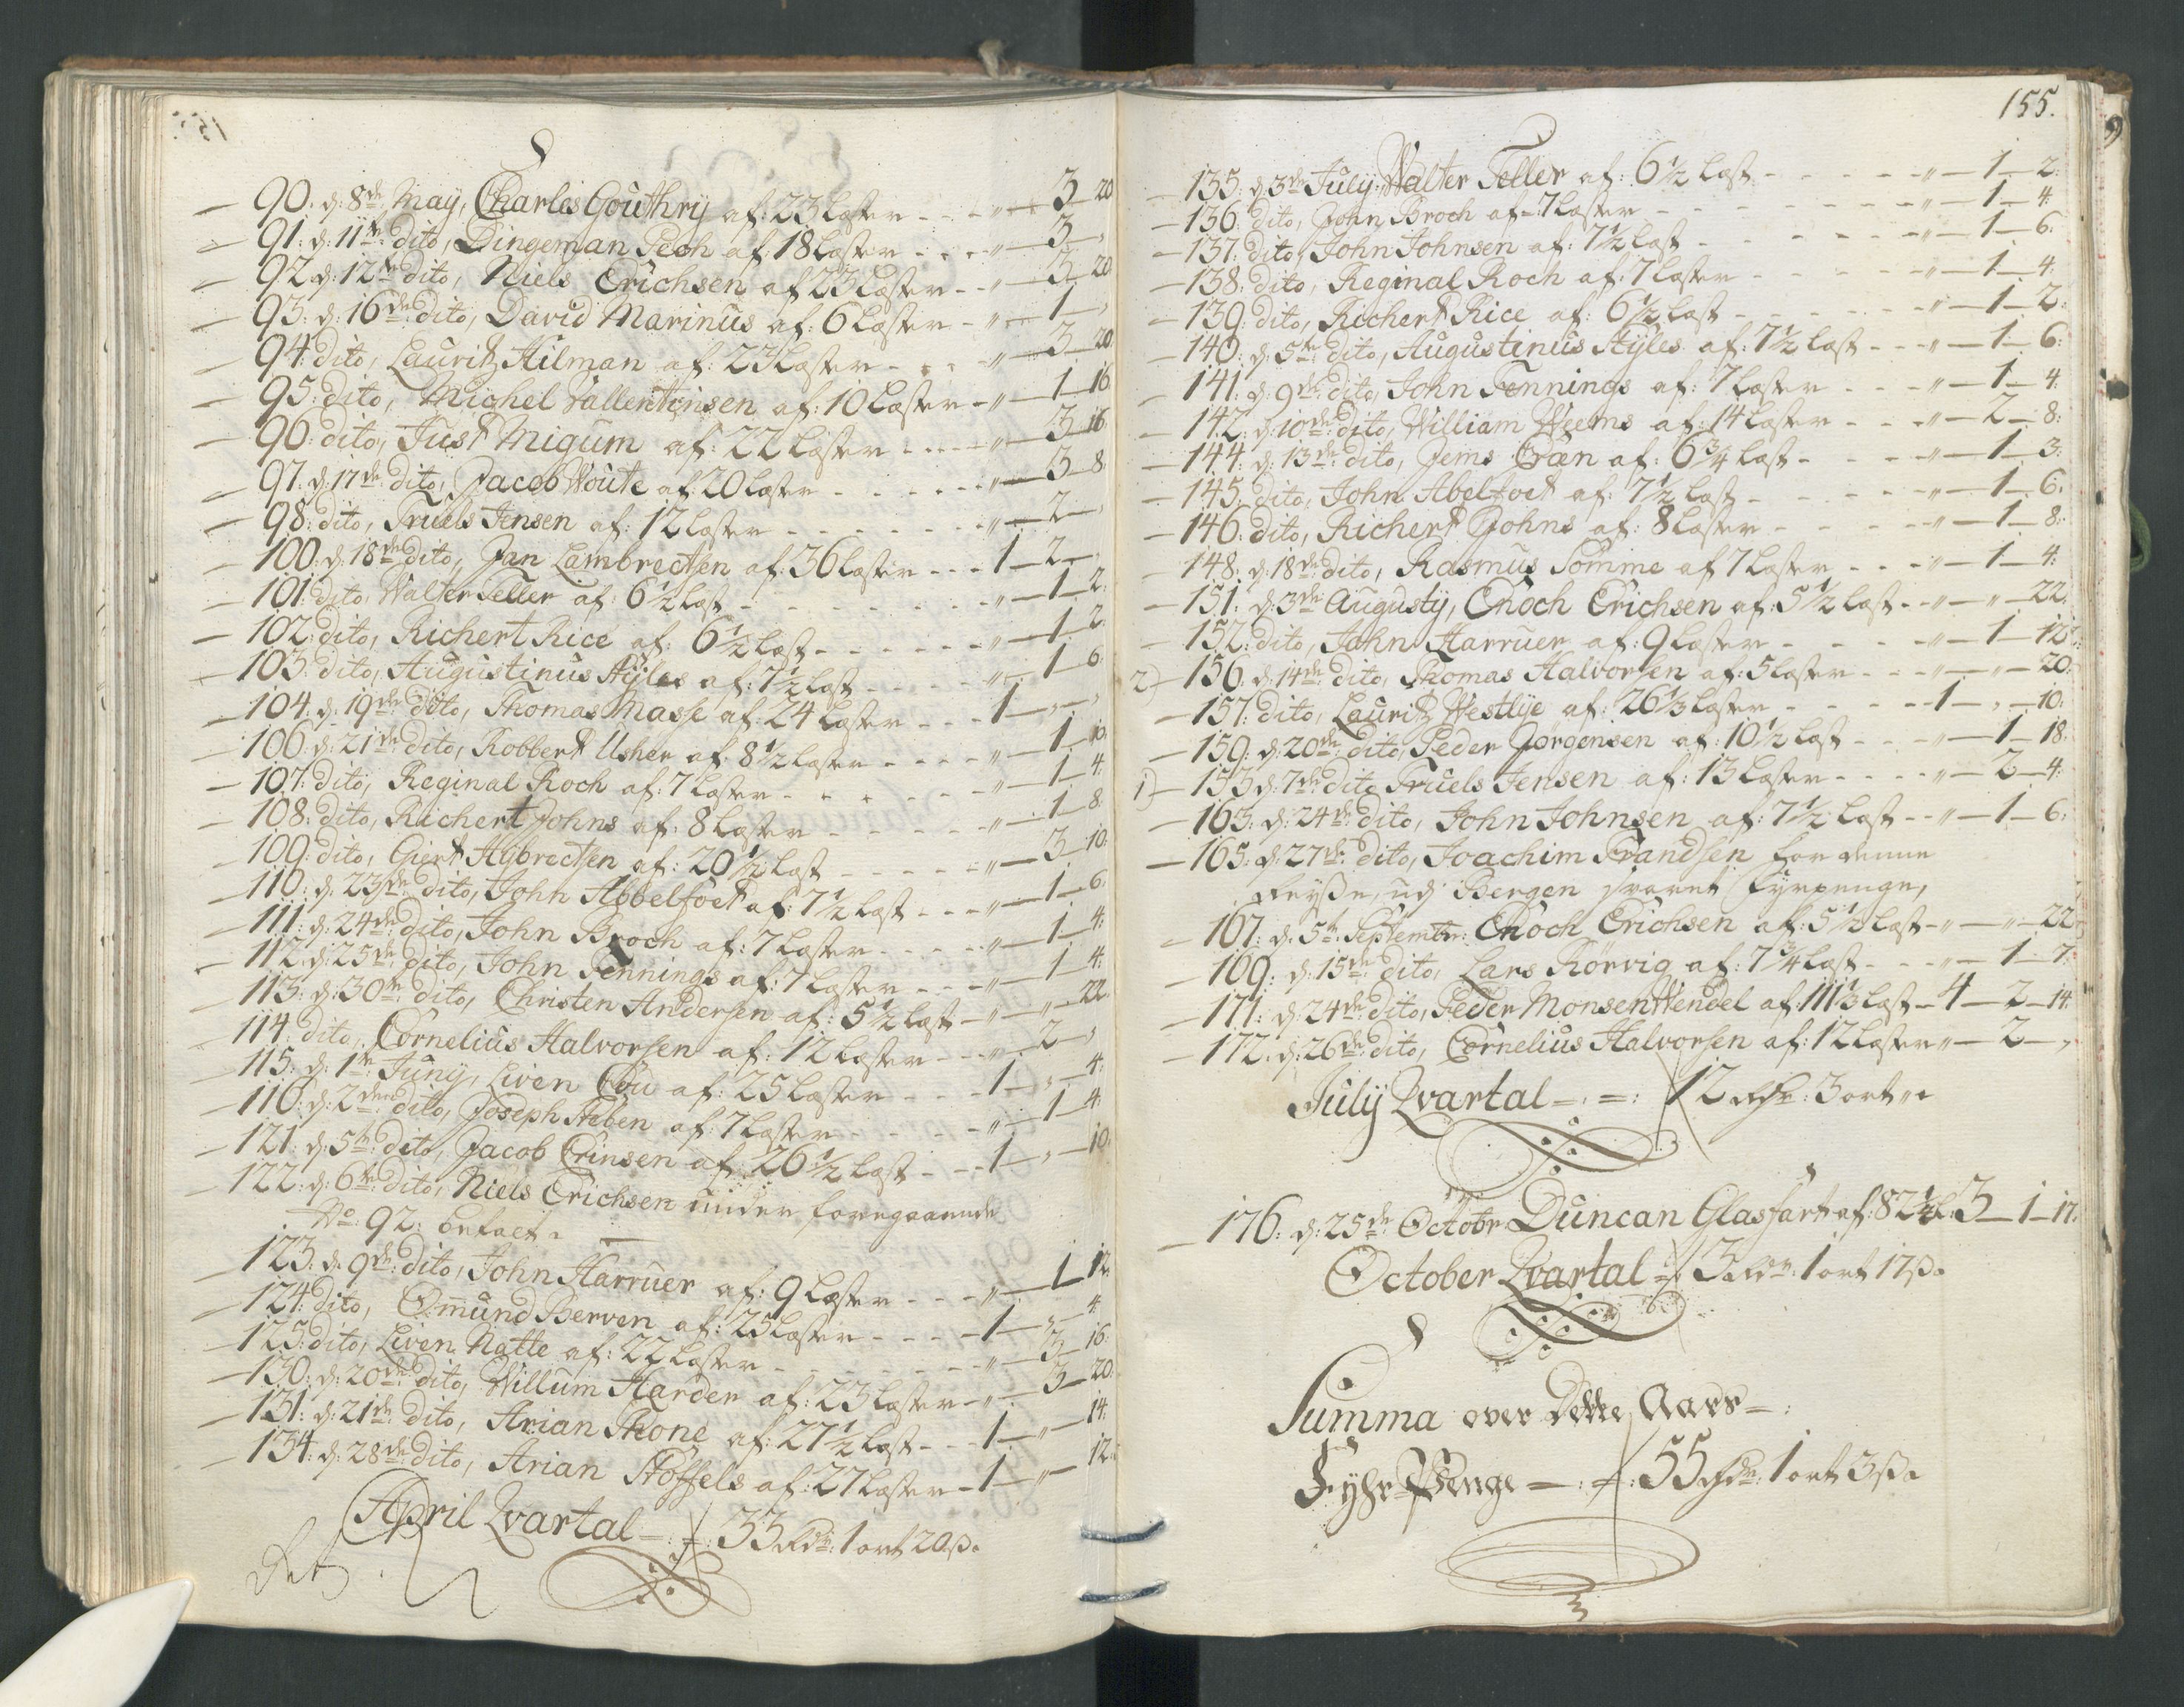 90. d: 8de May, Charles Gouthry af: 23 læster - - - " - 3 - 20
91: d: 11te dito, Dingeman Pech af: 18 læster - - - " - 3 - "
92. d: 12te dito, Niels Erichsen af 23 Læster - - " - 3 - 20
93: d: 16de dito, David Marinus af: 6 Læster - " - 1 - "
94: dito, Lauritz Hilman af: 23 Læster - - - " - 3 - 20
95: dito, Michel Vallentinsen af: 10 Læster - " - 1 - 16
96: dito, Just Migum af: 22 Læster - - - - " - 3 - 16
97. d: 17de dito, Jacob Woute af 20 Læster - - - - " - 3 - 8
98: dito, Truels Jensen af: 12 læster - - - - - " - 2 - "
100: d: 18de dito, Jan Lambrectsen af: 36 læster - - - 1 - 2 - "
101: dito, Walter Teller af: 6½ læst - - - - - - " - 1 - 2
102: dito, Richert Rice af: 6½ læst - - - - - - " - 1 - 2
103: dito, Augustinus Hÿles af: 7½ læst - - - - " - 1 - 6
104. d: 19de dito, Thomas Masse af: 24 læster - - - 1 - " - "
106: d: 21de dito, Robbert Usher af: 8½ læster - - - - " - 1 - 10
107: dito, Reginal Roch af: 7 læster - - - - - " - 1 - 4
108: dito, Richert Johns af: 8 læster - - - - - " - 1 - 8
109: dito, Giert Hÿbrectsen af: 20½ læst - - - - - " - 3 - 10
110: d: 23de dito, John Abbelfoet af: 7½ læst - - - " - 1 - 6
111: d: 24de dito, John Broch af: 7 læster - - - - " - 1 - 4
112: d: 25de dito, John Fennings af: 7 Læster - - - " - 1 - 4
113: d: 30te dito, Christen Andersen af: 5½ læst - " - " - 22
114: dito, Cornelius Halvorsen af: 12 læster - - - " - 2 - "
115: d: 1te Juny, Liven Cou af: 25 læster - - - 1 - " - 4
116: d: 2den dito, Joseph Heben af: 7 læster - - - - " - 1 - 4
121: d: 5te dito, Jacob Crinsen af: 26½ læst - - - 1 - " - 10
122: d: 6te dito, Niels Erichsen under foregaaende
No: 92: betalt.
123: d: 9de dito, John Harruer af: 9 læster - - - " - 1 - 12
124: dito, Omund Berven af: 25 læster - - - - 1 - " - 4
125: dito, Liven Natte af: 22 læster - - - - - " - 3 - 16
130: d: 20de dito, Willum Harder af: 23 læster - " - 3 - 20
131: d: 21de dito, Arian Thone af: 27½ læst - - 1 - " - 14
134: d: 28de dito, Arian Stoffels af: 27 læster - 1 - " - 12
April Qvartal - : 33 Rdr: 1 ort 20 ß.
155.
135: d: 3de July, Walter Teller af: 6½ læst - - - - - " - 1 - 2
136: dito, John Broch af: 7 læster - - - - - - " - 1 - 4
137: dito, John Johnsen af: 7½ læst - - - - - " - 1 - 6
138: dito, Reginal Roch af: 7 læster - - - - - " - 1 - 4
139: dito, Richert Rice af: 6½ læst - - - - - " - 1 - 2
140: d: 5te dito, Augustinus Hÿles af: 7½ læst - - - " - 1 - 6
141: d: 9de dito, John Fennings af: 7 læster - - - " - 1 - 4
142: d: 10de dito, William Weems af: 14 læster - - - " - 2 - 8
144: d: 13de dito, Jems Cræn af: 6¾ læst - - - " - 1 - 3
145: dito, John Abelfoet af: 7½ læst - - - - - " - 1 - 6
146: dito, Richert Johns af: 8 læster - - - - - " - 1 - 8
148: d: 18de dito, Rasmus Somme af 7 læster - - - " - 1 - 4
151: d: 3de Augusty, Enoch Erichsen af: 5½ læst - - " - " - 22
152: dito, John Harruer af: 9 læster - - - - - " - 1 - 12
2) 156. d: 14de dito, Thomas Halvorsen af: 5 læster - - - " - " - 20
157: dito, Lauritz Westlÿe af: 26⅓ læster - - - - - 1 - " - 10
159: d: 20de dito, Peder Jørgensen af: 10½ læst - - - " - 1 - 18
1) 153 d: 7de dito Truels Jensen af: 13 læster - - - - " - 2 - 4
163: d: 24de dito, John Johnsen af: 7½ læst - - " - 1 - 6
165: d: 27de dito, Joachim Frandsen for denne
Reyse, udj Bergen svaret Fyrpenge,
167: d: 5te Septembr: Enoch Erichsen af: 5½ læst - " - " - 22
169: d: 15de dito, Lars Körvig af: 7¾ læst - - - " - 1 - 7
171: d: 24de dito, Peder Monsen Wendel af: 111⅓ læst - 4 - 2 - 14
172: d: 26de dito, Cornelius Halvorsen af: 12 læster " - 2 - "
July Qvartal - : 12 Rdr: 3 ort "
176: d: 25de Octobr Duncan Glasfart af: 82½ l: 3 - 1 - 17
October Qvartal - : 3 Rdr: 1 ort 17 ß.
Summa over Dette Aars - :
Fyhr-Penge - : 55 Rdr: 1 ort 3 ß.